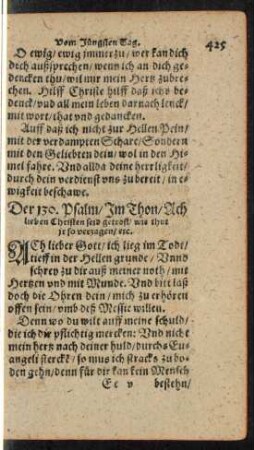 Vom Jüngsten Tag. 425
O ewig/ ewig immer zu/ wer kan dich
doch außsprechen/ wenn ich an dich ge-
dencken thu/ wil mir mein Hertz zubre-
chen. Hilff Christe hilff daß ichs be-
denck/ vnd all mein leben darnach lenck/
mit wort/ that vnd gedancken.
Auff daß ich nicht zur Hellen Pein/
mit der verdampten Schare/ Sondern
mit den Geliebten dein/ wol in den Hi-
mel fahre. Vnd allda deine herrligkeit/
durch dein verdienst vns zu bereit/ in e-
wigkeit beschawe.
Der 130. Psalm/ Im Thon/ Ach
lieben Christen seid getrost/ wie thut
jr so verzagen/ etc.
ACh lieber Gott/ ich lieg im Todt/
tieff in der Hellen grunde/ Vnnd
schrey zu dir auß meiner noth/ mit
Hertzen vnd mit Munde. Vnd bitt laß
doch die Ohren dein/ mich zu erhören
offen sein/ vmb deß Messie willen.
Denn wo du wilt auff meine schuld/
die ich die pflichtig mercken: Vnd nicht
mein hertz nach deiner huld/ durchs Eu-
angeli sterckt/ so mus ich stracks zu bo-
den gehn/ denn für dir kan kein Mensch
Ee v bestehn/